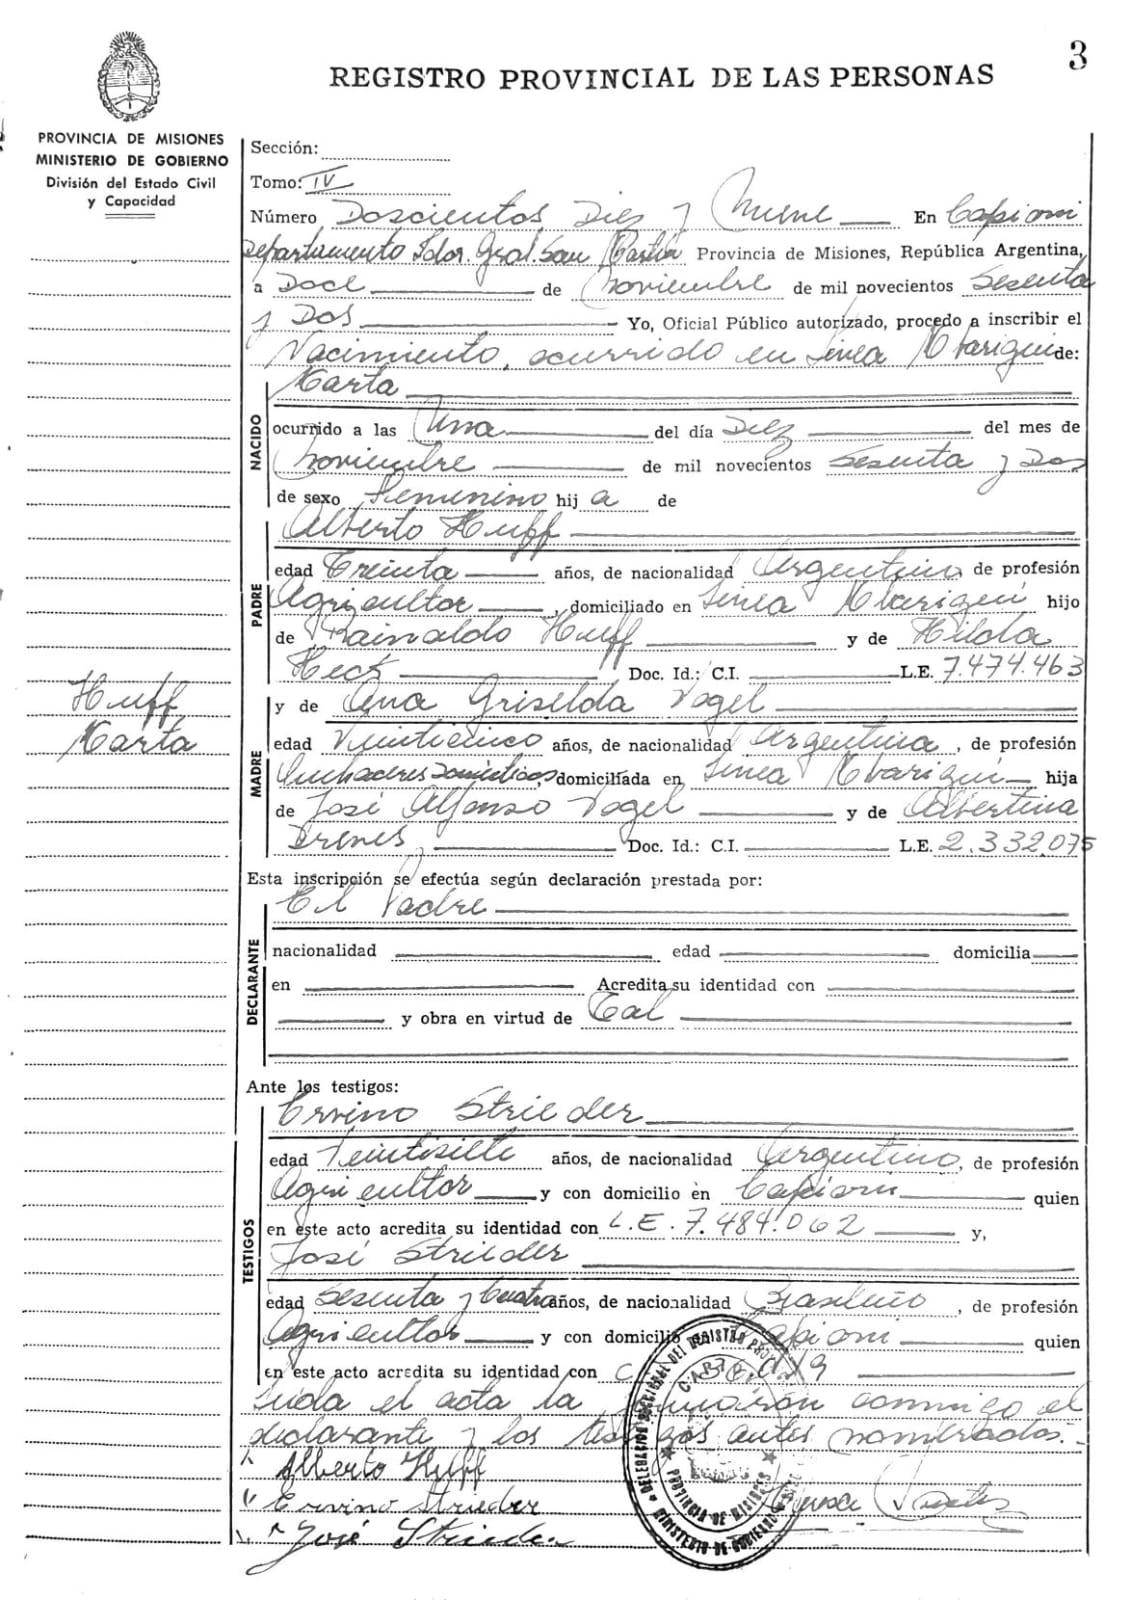 3
REGISTRO PROVINCIAL DE LAS PERSONAS
PROVINCIA DE MISIONES
MINISTERIO DE GOBIERNO
División del Estado Civil
y Capacidad
Sección:
Tomo: IV
Número Doscientos Diez y Nueve En Capiovi
Departamento Ldor. Gral. San Martín Provincia de Misiones, República Argentina,
a Doce de Noviembre de mil novecientos Sesenta
y Dos Yo, Oficial Público autorizado, procedo a inscribir el
Nacimiento, ocurrido en Linea de:
Marta
NACIDO
ocurrido a las Una del día Diez del mes de
Noviembre de mil novecientos Sesenta y Dos
de sexo Femenino hij a de
Alberto Huff
PADRE
edad Treinta años, de nacionalidad Argentino de profesión
Agricultor, domiciliado en Linea hijo
de Rainoldo Huff y de Hilda
Heck Doc. Id.: C.I. L.E. 7.474.463
Huff
Marta
y de Ana Griselda Vogel
MADRE
edad Veinticinco años, de nacionalidad Argentina, de profesión
domiciliada en Linea hija
de José Alfonso Vogel y de Albertina
Doc. Id.: C.I. L.E. 2.332.075
Esta inscripción se efectúa según declaración prestada por:
El Padre
DECLARANTE
nacionalidad edad domicilia
en Acredita su identidad con
y obra en virtud de Tal
Ante los testigos:
TESTIGOS
Ervino Strieder
edad Veintisiete años, de nacionalidad Argentino, de profesión
Agricultor y con domicilio en Capiovi quien
en este acto acredita su identidad con L.E. 7.484.062 y,
José Strieder
edad Sesenta y Cuatro años, de nacionalidad Brasileño, de profesión
Agricultor y con domicilio Capiovi quien
en este acto acredita su identidad con
Leída el acta la conmigo el
declarante y los testigos antes nombrados.-
Alberto Huff
Ervino Strieder
José Strieder
DELEGACION SECCIONAL DEL REGISTRO
PROVINCIA DE MISIONES
MINISTERIO DE GOBIERNO